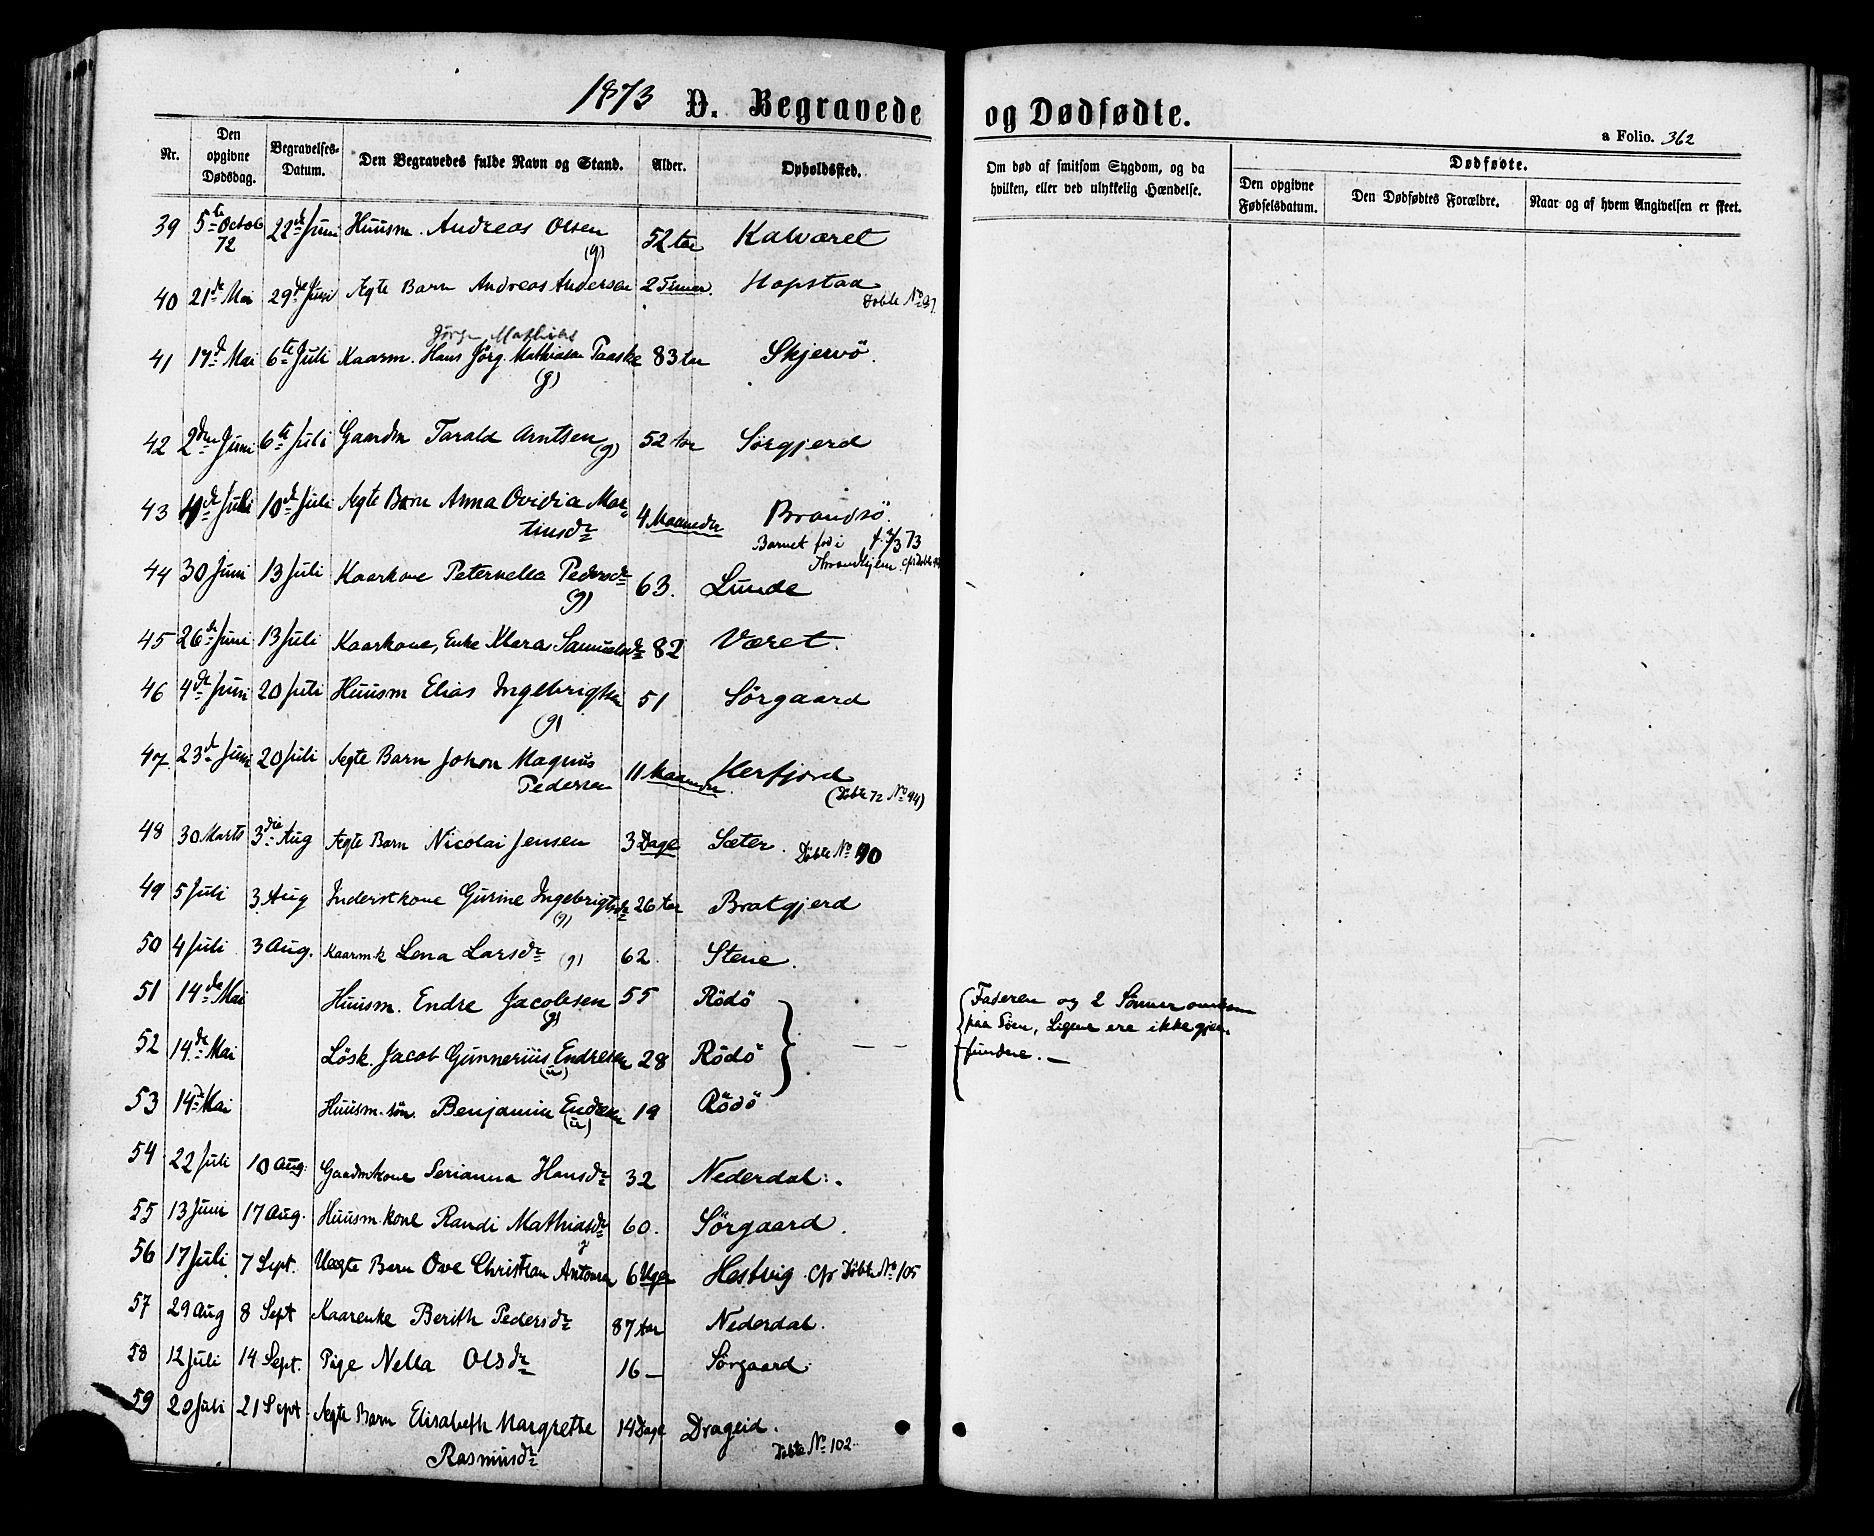 1873 D. Begravede og Dødfødte.
a Folio. 362
Nr. Den opgivne Dødsdag. Begravelses-Datum. Den Begravedes fulde Navn og Stand. Alder. Opholdssted. Om død af smitsom Sygdom, og da hvilken, eller ved ulykkelig Hændelse. Dødfødte.
Den opgivne Fødselsdatum. Den Dødfødtes Forældre. Naar og af hvem Angivelsen er skeet.
39 5te Octob 72 22de Juni Huusm. Andreas Olsen (g) 52 aar Kalværet
40 21de Mai 29de Juni Ægte Barn Andreas Andersen 2 Timer. Hopstad
Døbte No 37
Jørgen Mathias
41 17de Mai 6te Juli Kaarm. Hans Jörg. Mathiasen Taaske (g) 83 aar Skjervö.
42 2den Juni 6te Juli Gaardm Tarald Arntsen (g) 52 aar Sörgjerd
43 4de Juli 10de Juli Ægte Barn Anna Ovidia Mar-
tinsdr 4 Maaneder Brandsö.
Barnet fød i f. 2/3 73
44 30 Juni 13 Juli Kaarkone Peternella Pedersdr (g) 63. Lunde
45 26de Juni 13 Juli Kaarkone, Enke Mera Samuelsdr 82 Været.
46 4de Juni 20 Juli Huusm Elias Ingebrigtsen (g) 51 Sörgaard
47 23de Juni 20 Juli Ægte Barn Johan Magnus
Pedersen 11 Maaneder Herfjord
(Døbte 72 No 94)
48 30 Marts 3die Aug Ægte Barn Nicolai Jensen 3 Dage Sæter. Døbte No 90
49 5 Juli 3 Aug Inderstkone Gurine Ingebrigtsdr (g) 26 aar Bratgjerd
50 4 Juli 3 Aug. Kaarmk Lena Larsdr (g) 62. Stene.
51 14de Mai Huusm. Endre Jacobsen (g) 55 Rödö Faderen og 2 Sønner omkom
52 14de Mai Løsk. Jacob Gunnerius Endresen (u) 28 Rödö paa Søen, Ligene ere ikke gjen-
fundne. —
53 14de Mai Huusm. søn Benjamin Endresen (u) 19 Rödö
54 22 Juli 10 Aug. Gaardmkone Serianna Hansdr 32 Nederdal.
55 13 Juni 17 Aug. Huusm. kone Randi Mathiasdr g 60. Sörgaard.
56 17 Juli 7 Sept. Uægte Barn Ove Christian Antonsen 6 Uger Hestvig cfr Døbte No 105
57 29 Aug 8 Sept Kaarenke Berith Pedersdr 87 aar Nederdal.
58 12 Juli 14 Sept. Pige Nella Olsdr 16 — Sörgaard
59 20 Juli 21 Sept Ægte Barn Elisabeth Margrethe
Rasmusdr 14 Dage Drageid.
Døbte No 102